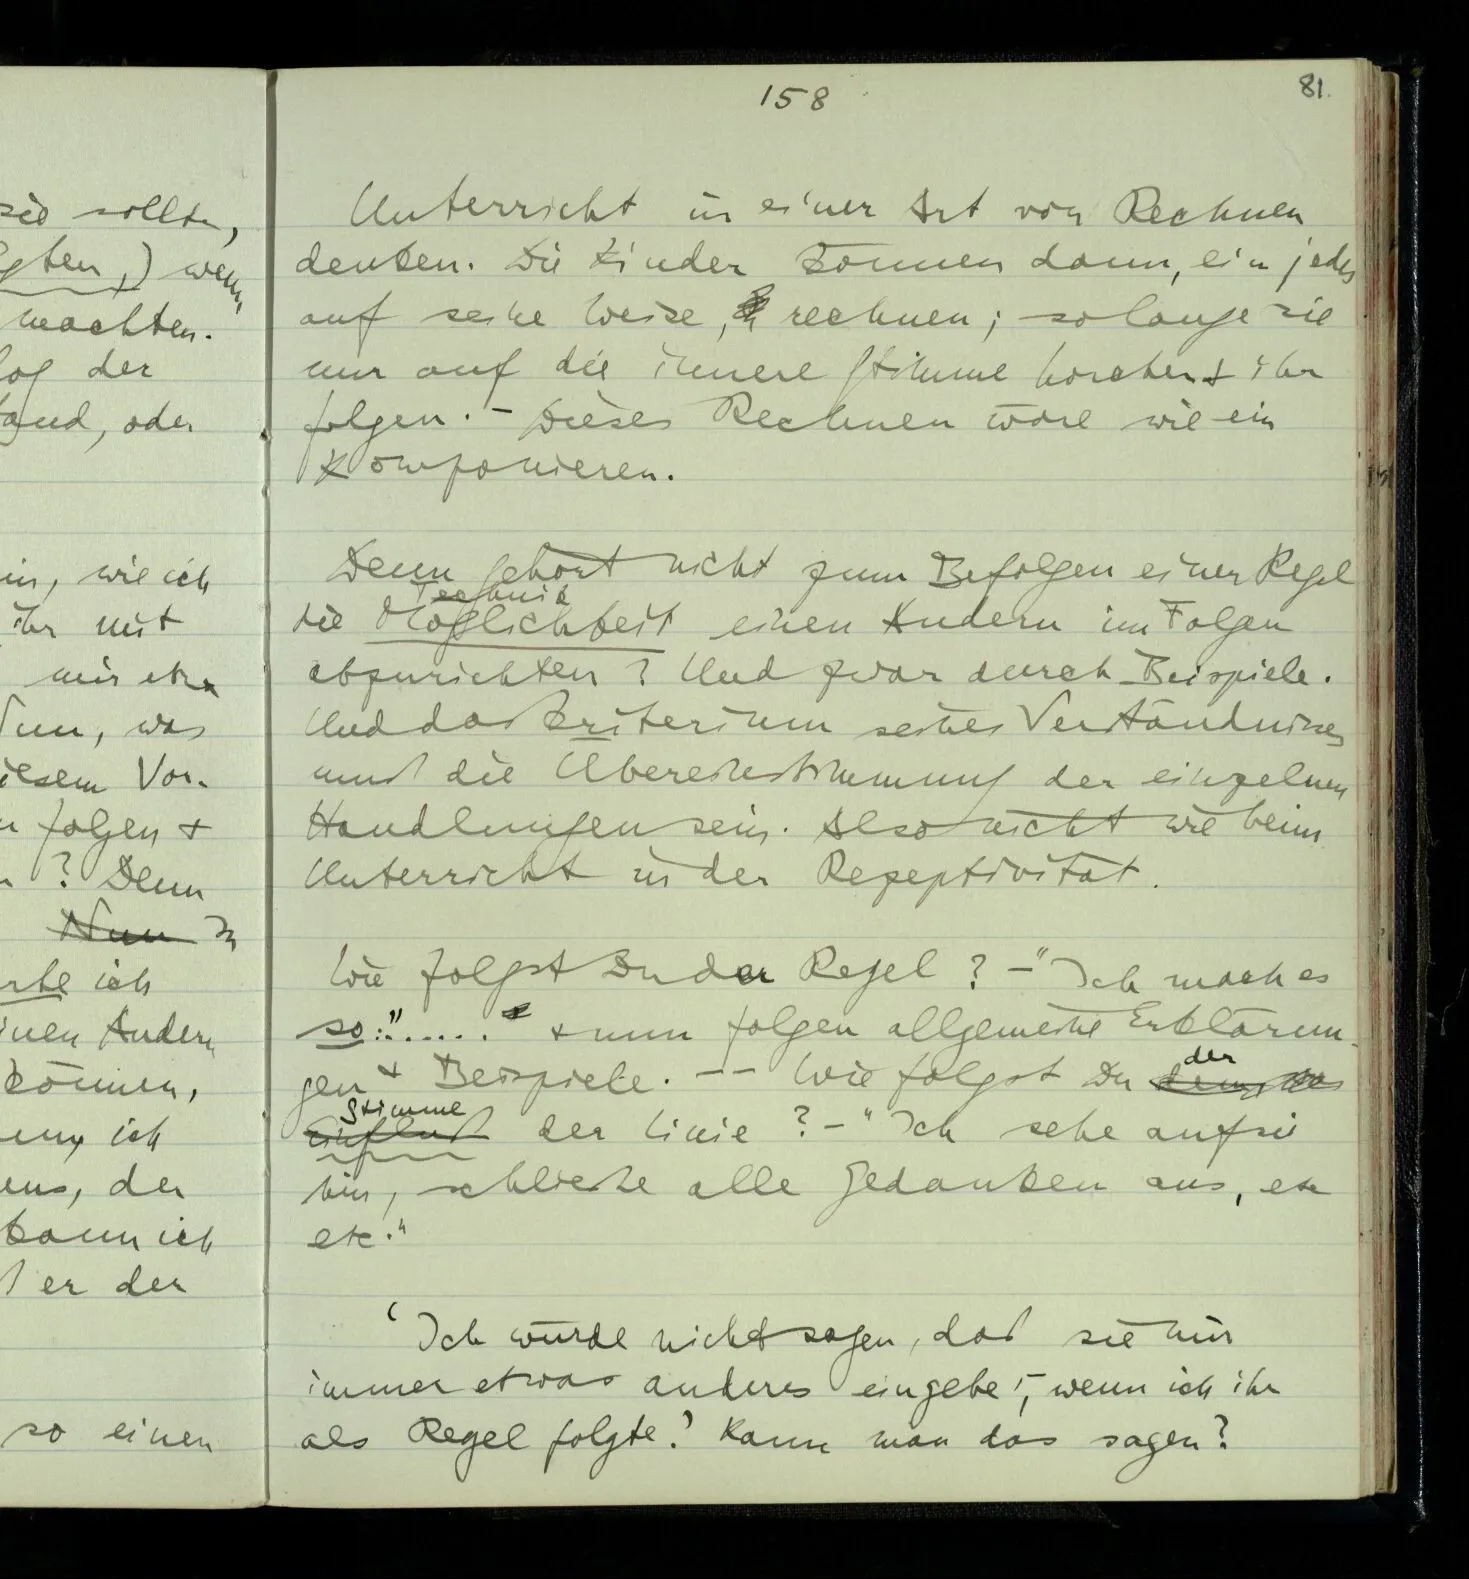 158
81.
sie sollten,
gten,) wenn,
machten.
log der
tand, oder
in, wie ich
ihr mit
mir etwa
Nun, was
iesem Vor-
n folgen +
n? Denn
Nun In
rte ich
inen Andern
können,
ich
ens, der
kann ich
er der
so einen
Unterricht in einer Art von Rechnen
denken. Die Kinder können dann, ein jedes
auf seine Weise, rechnen; solange sie
nur auf die innere Stimme horchen + ihr
folgen. – Dieses Rechnen wäre wie ein
Komponieren.
Denn gehört nicht zum Befolgen einer Regel
Technik
die Möglichkeit einen Andern im Folgen
abzurichten? Und zwar durch Beispiele.
Und das Kriterium seines Verständnisses
muß die Übereinstimmung der einzelnen
Handlungen sein. Also nicht wie beim
Unterricht in der Rezeptivität.
Wie folgst Du der Regel? – "Ich mach es
so:"..... + nun folgen allgemeine Erklärun-
gen + Beispiele. –– Wie folgst Du der
Stimme
Einfluß der Linie? – "Ich sehe auf sie
hin, schließe alle Gedanken aus, etc
etc."
'Ich würde nicht sagen, daß sie mir
immer etwas anderes eingebe!, wenn ich ihr
als Regel folgte.' Kann man das sagen?